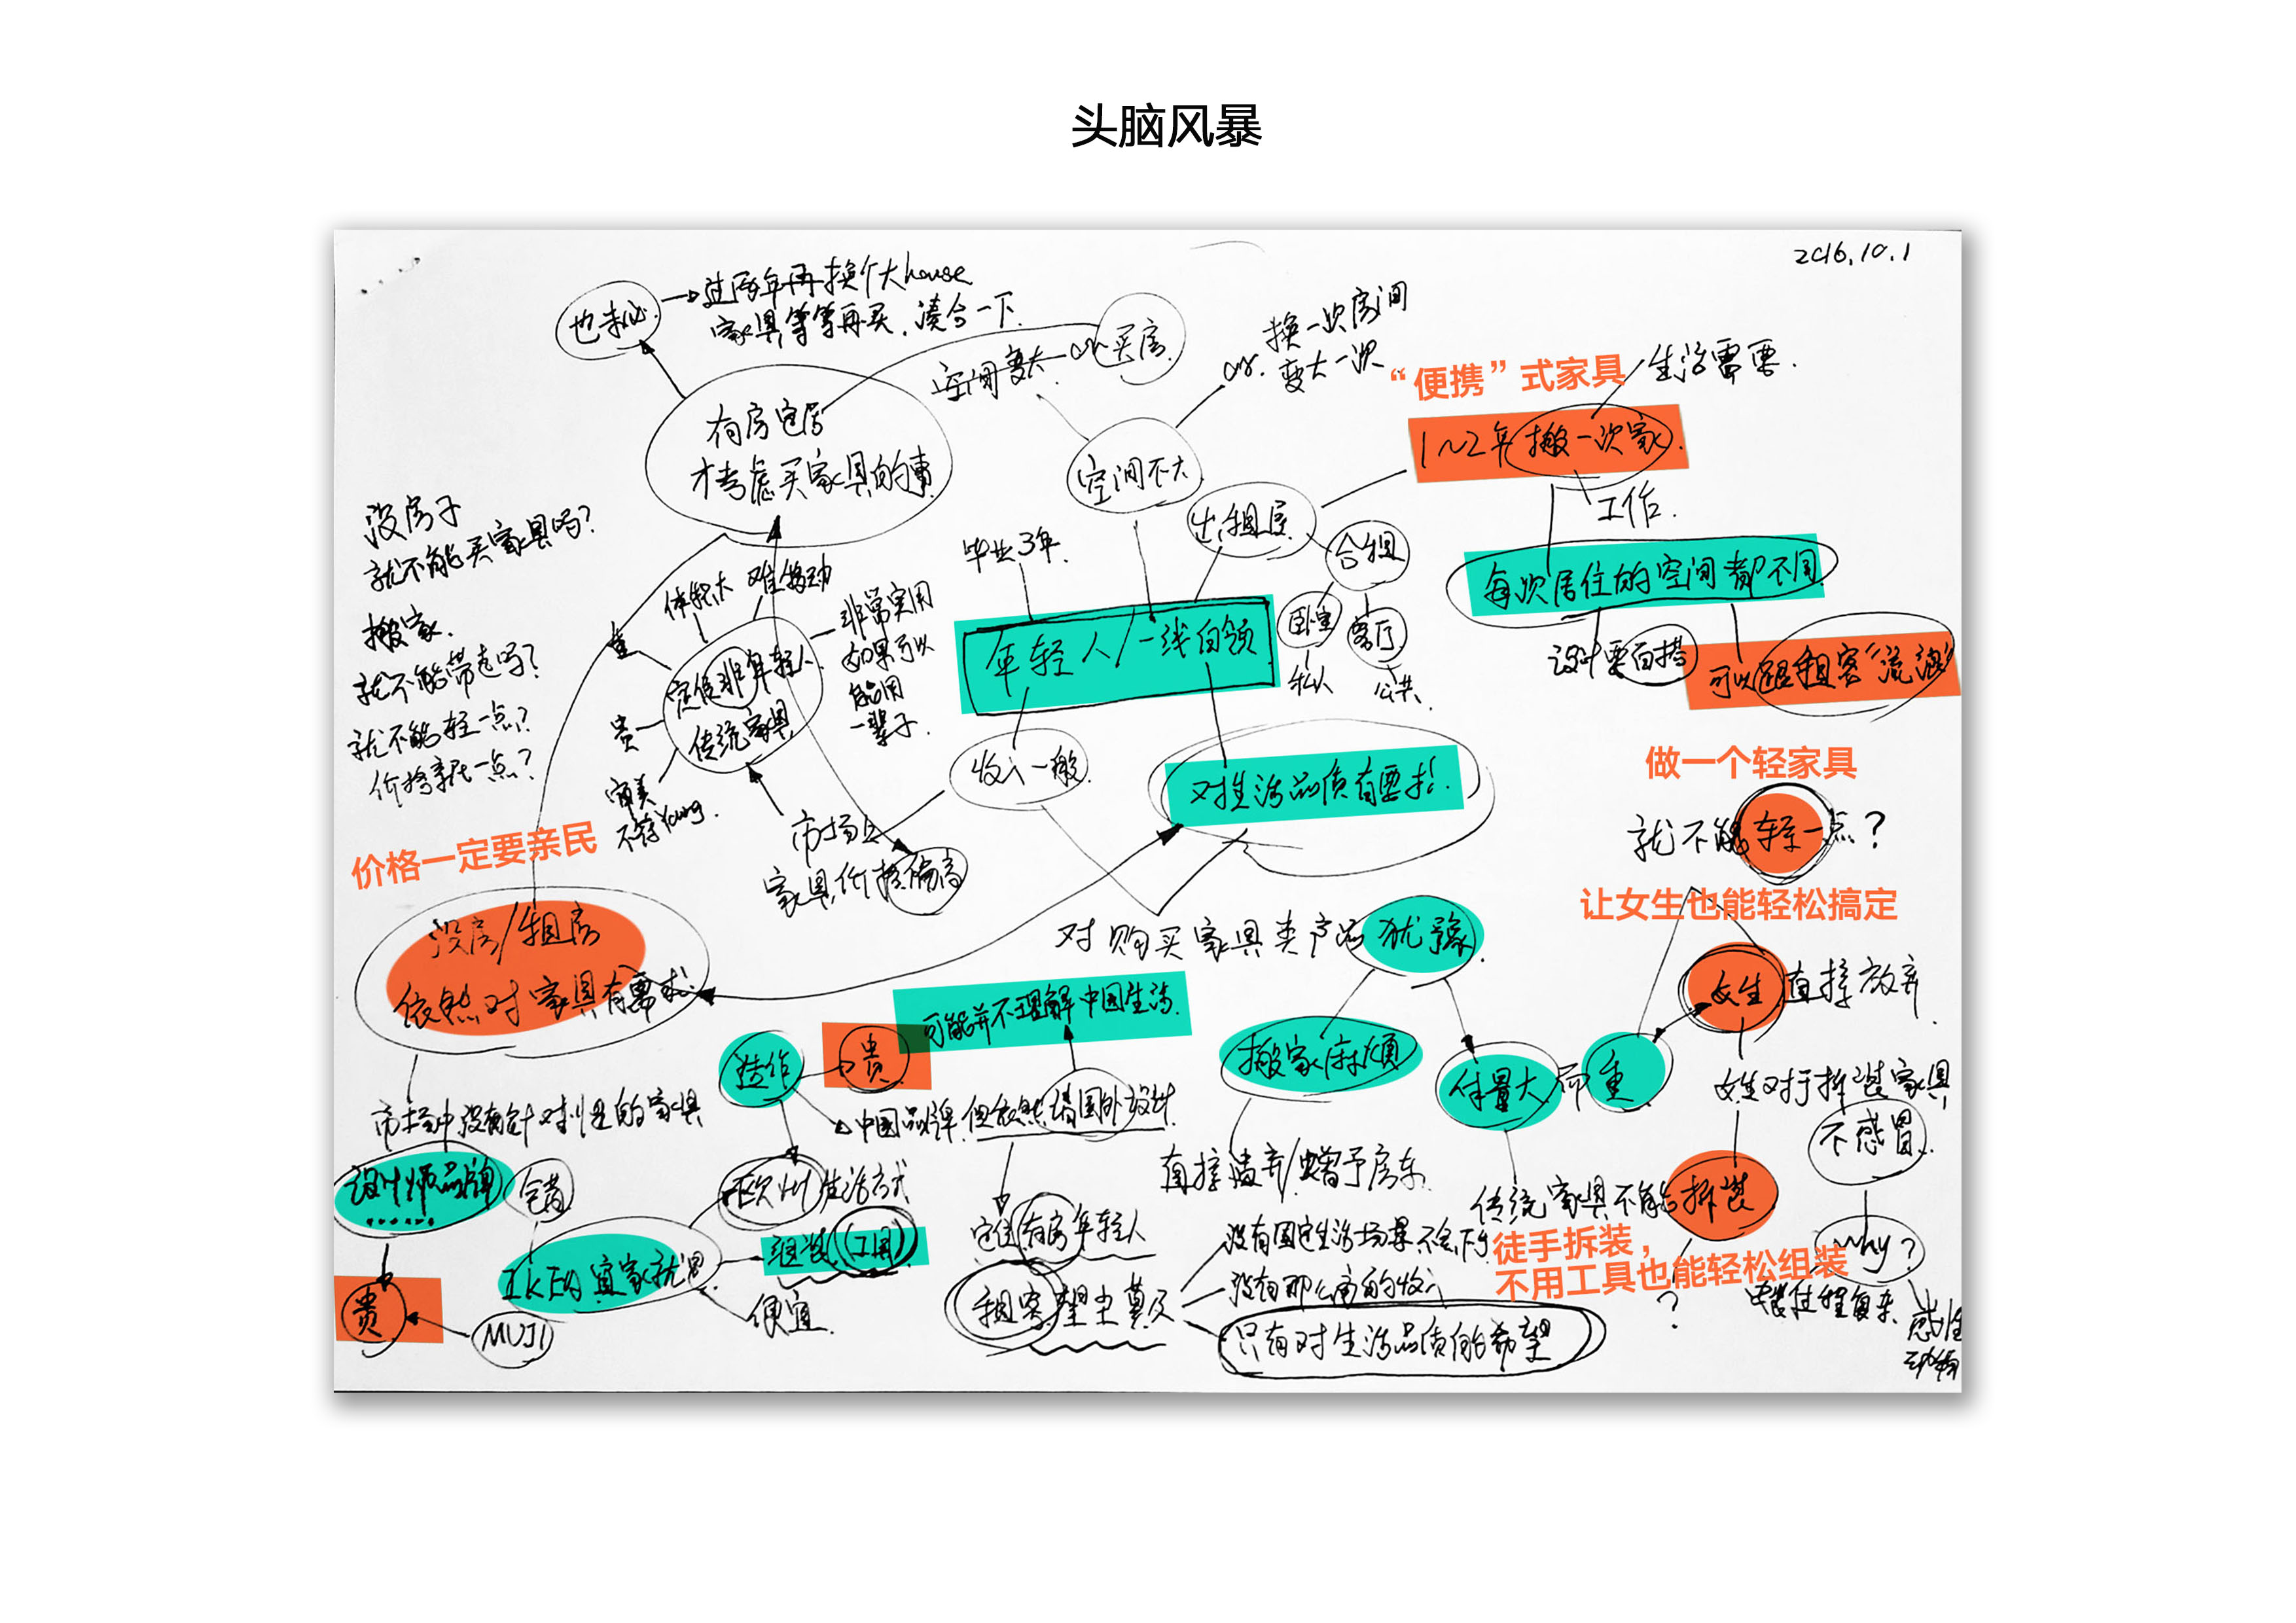 头脑风暴
2016.10.1
也未必
过两年再换个大house
家具等等再买，凑合一下
空间变大 or 买房
or. 换一次房间
变大一次
“便携”式家具
生活需要.
有房定居
才考虑买家具的事
空间不大
1~2年搬一次家.
工作.
出租屋
合租
卧室
客厅
私人
公共.
没房子
就不能买家具吗?
搬家.
就不能带走吗?
就不能轻一点?
价格亲民一点?
毕业3年.
体积大
难移动
重
贵
审美
不符Young.
定位非年轻人
传统家具
非常实用
如果可以
能用
一辈子.
年轻人/一线白领
每次居住的空间都不同
设计要百搭
可以跟租客“流浪”
收入一般.
对生活品质有要求.
市场上
家具价格偏高
做一个轻家具
就不能轻一点?
让女生也能轻松搞定
价格一定要亲民
没房/租房
依然对家具有需求.
对购买家具类产品犹豫.
女生直接放弃.
可能并不理解中国生活.
造作
贵
搬家麻烦
体量大而重
女生对于拆装家具
不感冒.
市场中没有针对性的家具
中国品牌.但依然请国外设计
直接遗弃/赠予房东.
设计师品牌
欧洲生活方式
传统家具不能拆装
徒手拆装，
不用工具也能轻松组装
why?
定位有房年轻人
没有固定生活场景
IKEA宜家就是
组装(工具)
便宜.
贵
MUJI
租客望尘莫及
没有那么高的收入
只有对生活品质的希望
?
安装过程复杂.
感性
动物